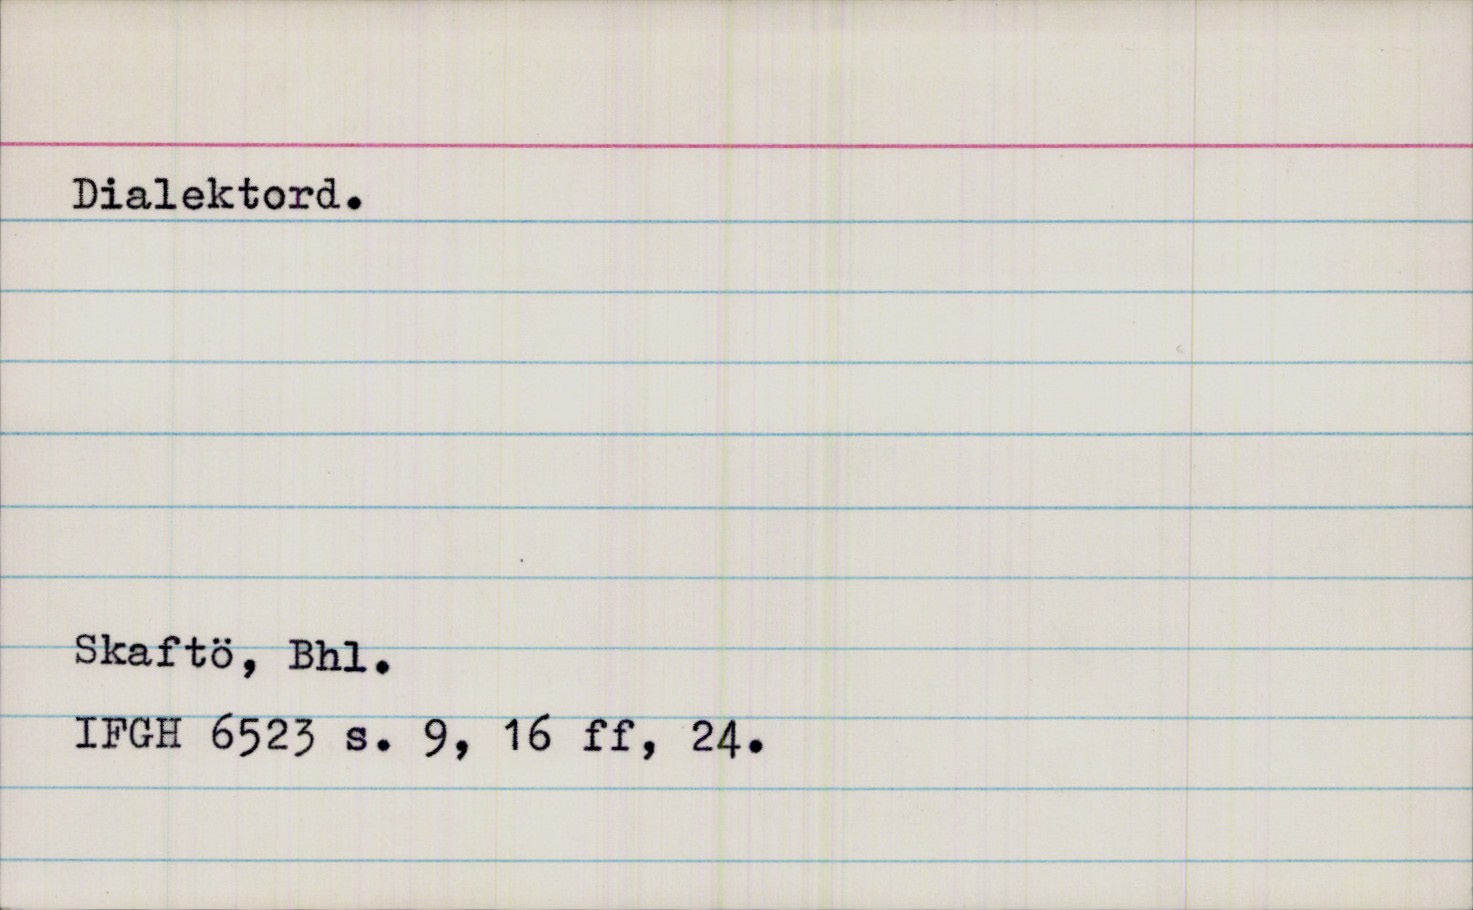 Dialektord.
Skaftö, Bhl.
IFGH 6523 s. 9, 16 ff, 24.